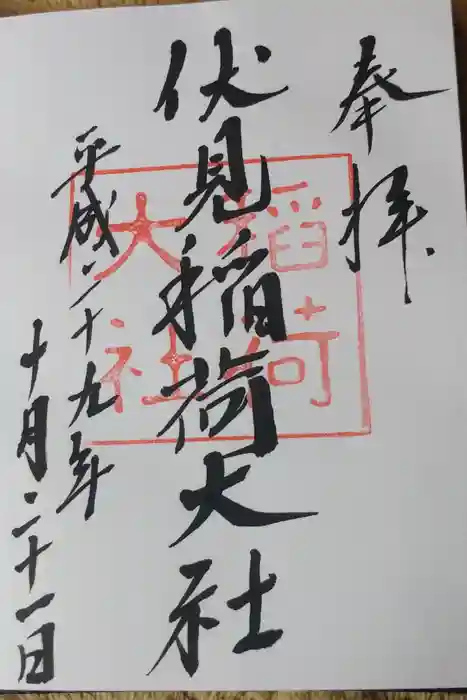 奉拝
伏見稲荷大社
稲荷
大社
平成二十九年
十月二十一日